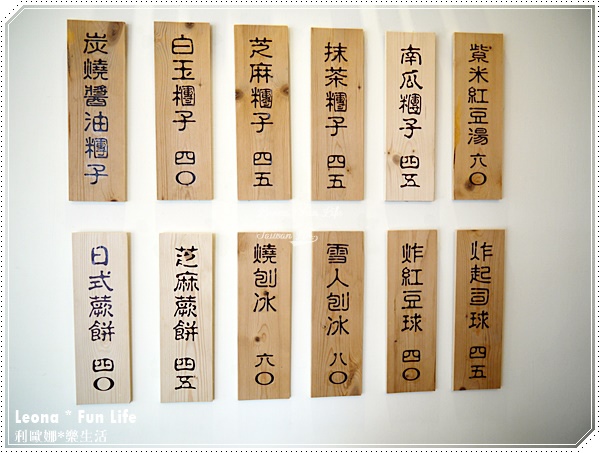 炭燒醬油糰子
白玉糰子 四〇
芝麻糰子 四五
抹茶糰子 四五
南瓜糰子 四五
紫米紅豆湯 六〇
日式蕨餅 四〇
芝麻蕨餅 四五
燒刨冰 六〇
雪人刨冰 八〇
炸紅豆球 四〇
炸起司球 四五
Leona * Fun Life
利歐娜*樂生活